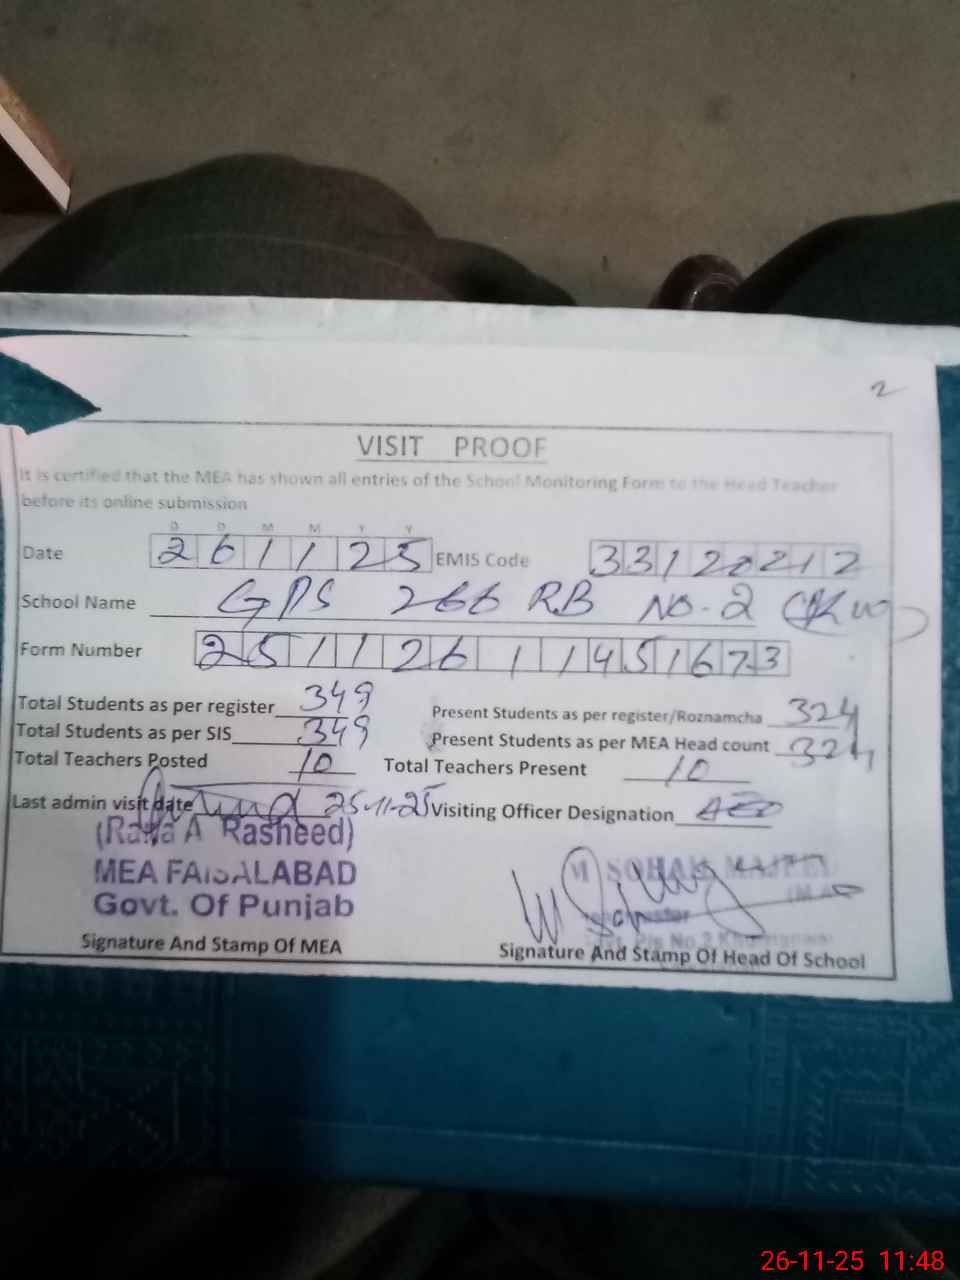 2
VISIT PROOF
It is certified that the MEA has shown all entries of the School Monitoring Form to the Head Teacher
before its online submission
D D M M Y Y
Date 261125 EMIS Code 33120212
School Name GPS 266 RB No-2
Form Number 25112611451673
Total Students as per register 349 Present Students as per register/Roznamcha 324
Total Students as per SIS 349 Present Students as per MEA Head count 324
Total Teachers Posted 10 Total Teachers Present 10
Last admin visit date 25-11-25 Visiting Officer Designation AEO
(Rana A Rasheed)
MEA FAISALABAD
Govt. Of Punjab
Signature And Stamp Of MEA
Signature And Stamp Of Head Of School
26-11-25 11:48